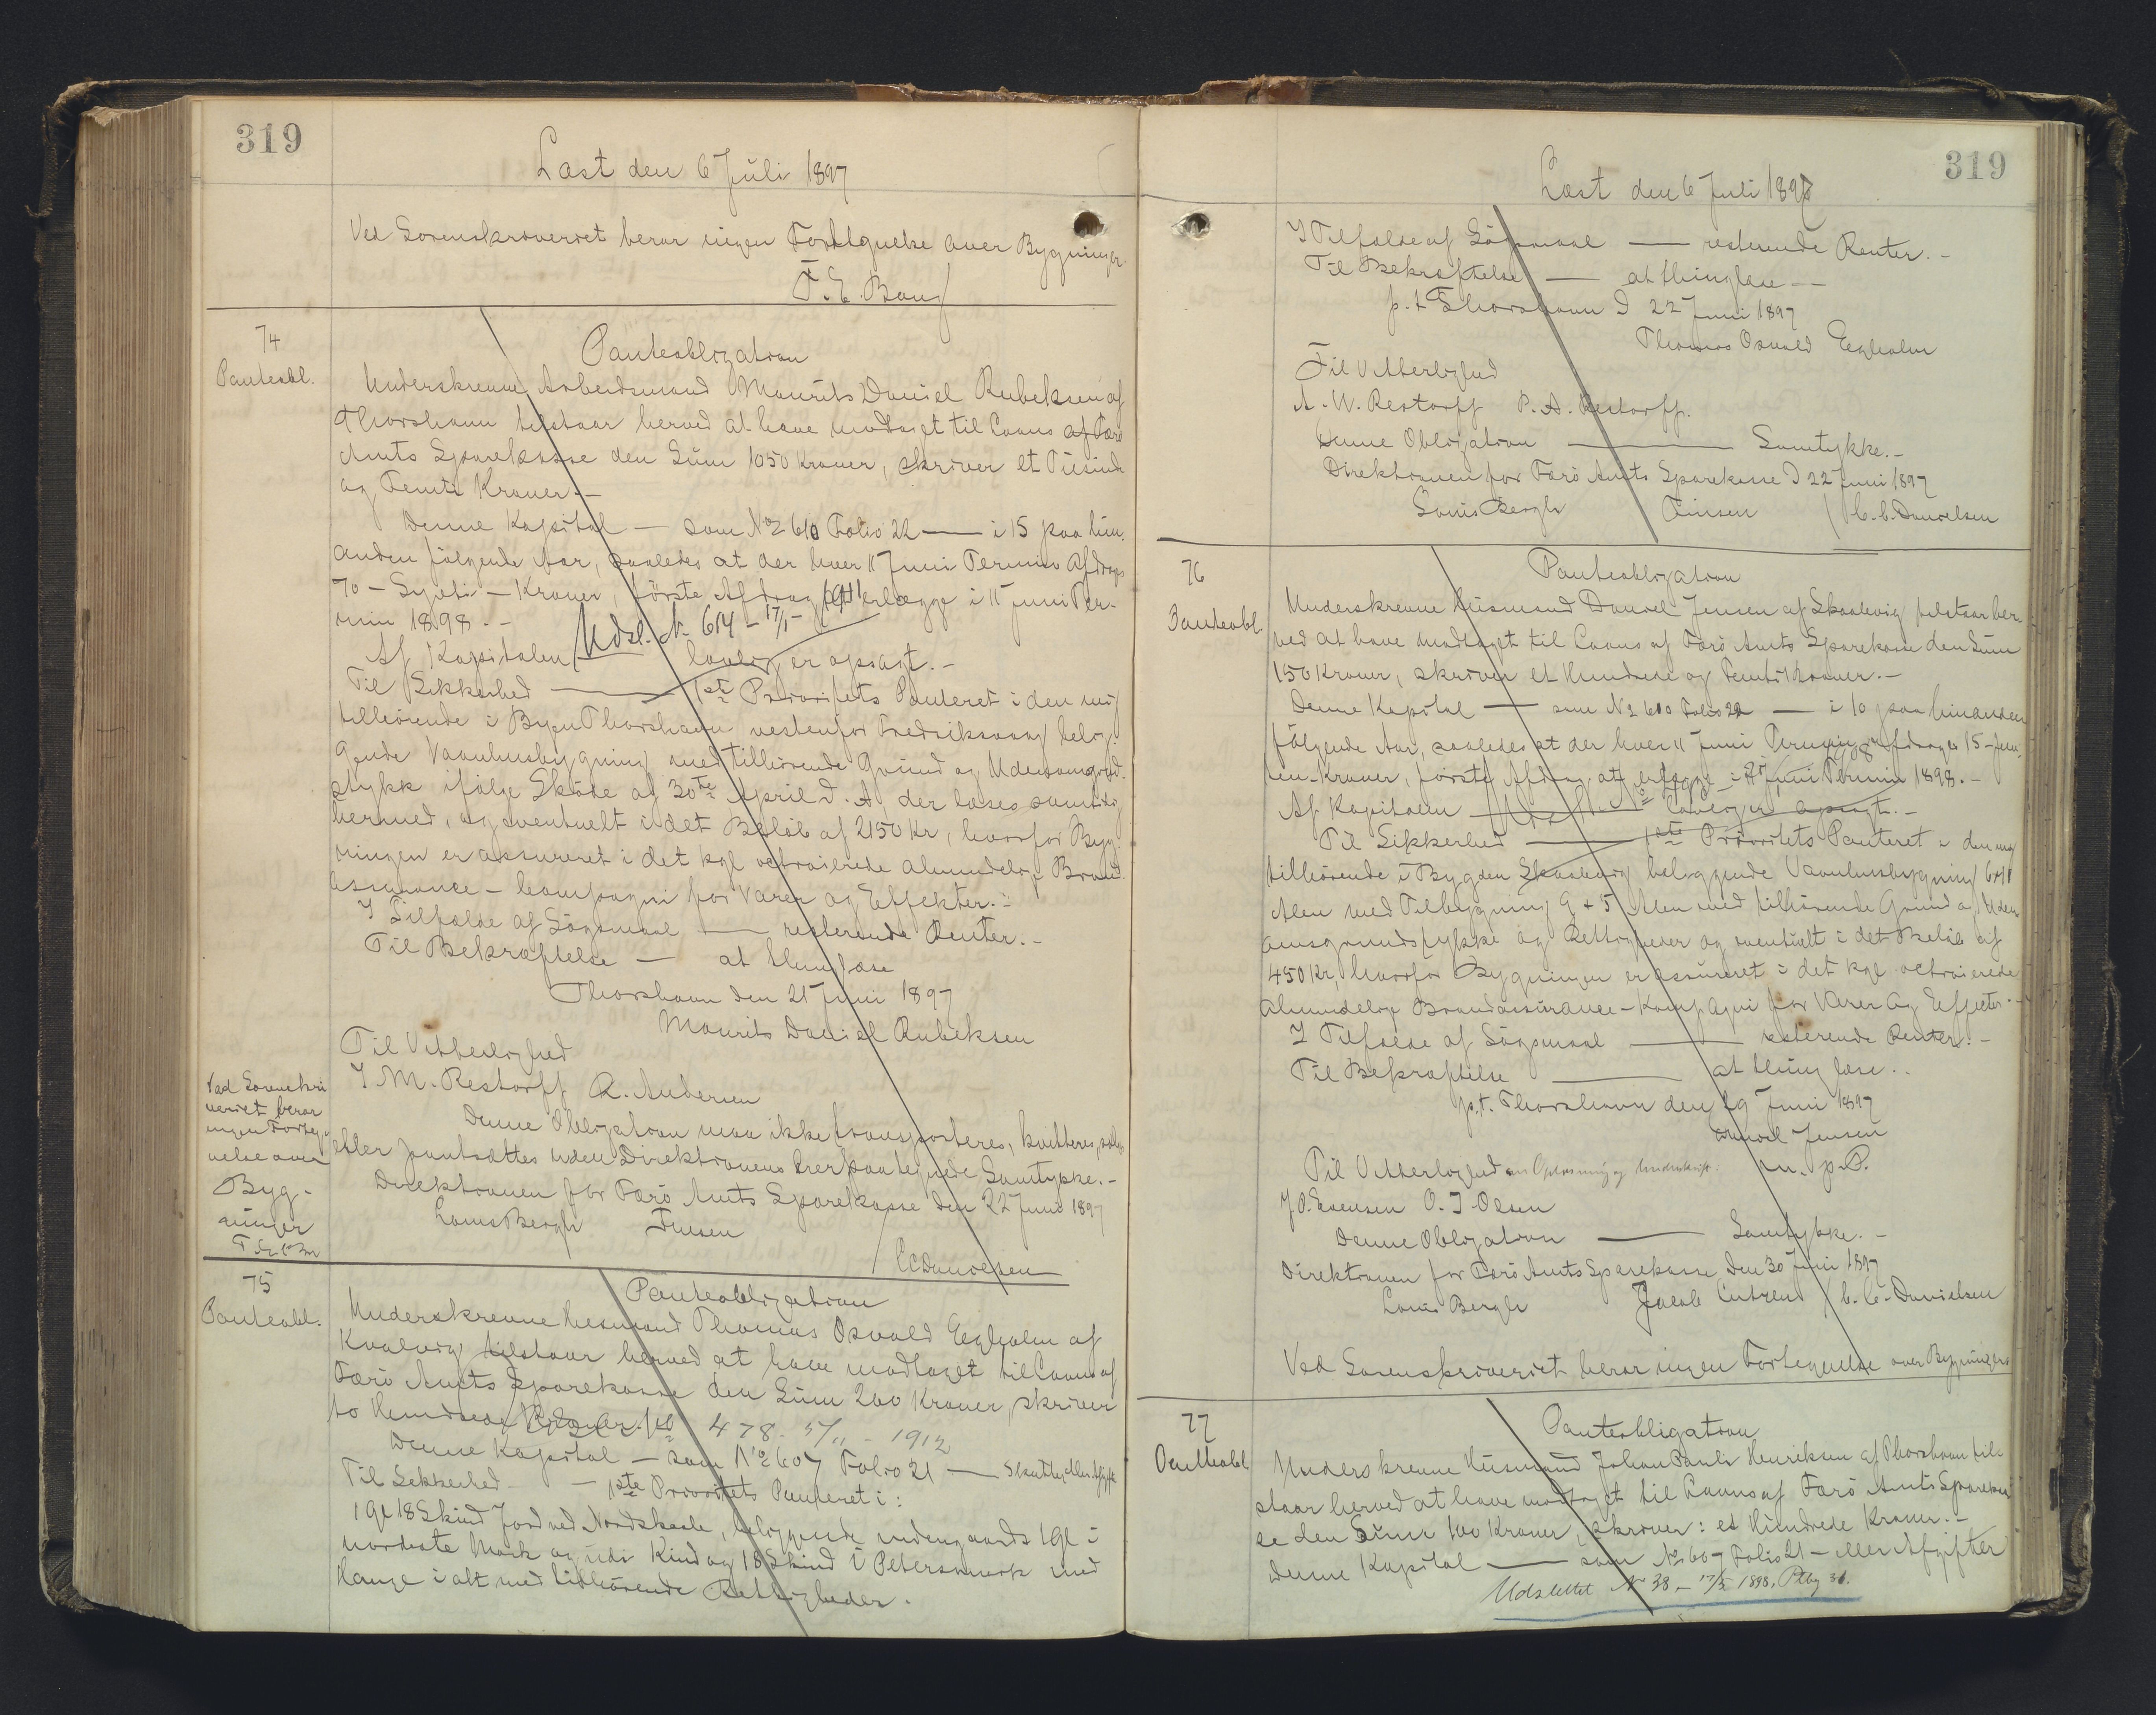 319
Læst den 6 Juli 1897
Ved Sorenskriveriet beror ingen Fortegnelse over Bygninger.
F. E. Bang
74
Panteobl.
Panteobligation
Underskrevne Arbeidsmand Maurits Daniel Rubeksen af
Thorshavn tilstaar herved at have modtaget til Laans af Færö
Amts Sparekasse den Sum 1050 Kroner, skriver et Tusinde
og Femti Kroner.-
Denne Kapital — som No 610 Folio 22 — i 15 paa hin-
anden fölgende Aar, saaledes at der hver 11 Juni Termin Afdrages
70 - Sytti - Kroner, förste Afdrag at erlægge i 11 Juni Ter-
min 1898.-
Udsl. No 614 - 17/1 - 1911
Af Kapitalen — lovlig er opsagt.-
Til Sikkerhed — 1ste Prioritets Panteret i den mig
tilhörende i Byen Thorshavn vestenfor Fredriksvaag belig-
gende Vaaningsbygning med tilhörende Grund og Udenomsgrund-
stykk ifölge Sköde af 30te April d. A. der læses samtidig
hermed, og eventuelt i det Belöb af 2150 Kr, hvorfor Byg-
ningen er assureret i det kgl octroierede almindelige Brand-
assurance - Compagni for Varer og Effekter.-
I Tilfælde af Sögsmaal — resterende Renter.-
Til Bekræftelse — at thinglæse
Thorshavn den 21 Juni 1897
Maurits Daniel Rubeksen
Til Vitterlighed
I M. Restorff R. Andersen
Ved Sorenskri
veriet beror
ingen Forteg-
nelse over
Byg-
ninger
Denne Obligation maa ikke transporteres, kvitteres, sælges
eller pantsættes uden Direktionens herpaa tegnede Samtykke.-
Direktionen for Færö Amts Sparekasse den 22 Juni 1897
Louis Bergh Finsen
/ C C Danielsen
75
Panteobl.
Panteobligation
Underskrevne Husmand Thomas Osvald Egholm af
Kvalvig tilstaar herved at have modtaget til Laans af
Færö Amts Sparekasse den Sum 200 Kroner, skriver
to Hundrede Kroner.
Udsl. No 478 - 5/11 - 1912
Denne Kapital — som No 607 Folio 21 — Skatter eller Afgift
Til Sikkerhed — 1ste Prioritets Panteret i:
1 Gl 18 Skind Jord ved Nordskaale, beliggende indengaards 1 Gl i
nordaste Mark og udi Kind og 18 Skind i Petersmark med
Hauge i alt med tilhörende Rettigheder.
319
Læst den 6 Juli 1897
I Tilfælde af Sögsmaal — resterende Renter.-
Til Bekræftelse — at thinglæse —
p. t Thorshavn D 22 Juni 1897
Thomas Osvald Egholm
Til Vitterlighed
A. W. Restorff P. A. Restorff.
Denne Obligation — Samtykke.-
Direktionen for Færö Amts Sparekasse D 22 Juni 1897
Louis Bergh Finsen / C. C. Danielsen
76
Panteobl.
Panteobligation
Underskrevne Husmand Daniel Jensen af Skaalevig tilstaar her-
ved at have modtaget til Laans af Færö Amts Sparekasse den Sum
150 Kroner, skriver et Hundrede og Femti Kroner.-
Denne Kapital — som No 610 Folio 22 — i 10 paa hinanden
fölgende Aar, saaledes at der hver 11 Juni Termin afdrages 15 - Fem-
ten - Kroner, förste Afdrag at erlægge i 11 Juni Termin 1898.-
Af Kapitalen — lovlig er opsagt.-
Til Sikkerhed — 1ste Prioritets Panteret i den mig
tilhörende i Bygden Skaalevig beliggende Vaaningsbygning
Alen med Tilbygning 9 + 5 Alen med tilhörende Grund og Uden-
omsgrundstykke og Rettigheder og eventuelt i det Belöb af
450 Kr, hvorfor Bygningen er assureret i det kgl octroierede
almindelige Brandassurance - Kompagni for Varer og Effecter.-
I Tilfælde af Sögsmaal — resterende Renter.-
Til Bekræftelse — at thinglæse.
p. t. Thorshavn den 29 Juni 1897
Daniel Jensen
m. p. P.
Til Vitterlighed om Oplæsning og Underskrift.
J. O. Evensen O. J. Olsen
Denne Obligation — Samtykke.-
Direktionen for Færö Amts Sparekasse den 30 Juni 1897
Louis Bergh Jacob Lutzen / C. C. Danielsen
Ved Sorenskriveriet beror ingen Fortegnelse over Bygninger
77
Panteobl
Panteobligation
Underskrevne Husmand Johan Pauli Henriksen af Thorshavn til-
staar herved at have modtaget til Laans af Færö Amts Sparekas-
se den Sum 100 Kroner, skriver: et Hundrede Kroner.-
Denne Kapital — som No 607 Folio 21 - eller Afgifter
Udslettet No 38 - 17/5 1898, Ptbg 31.